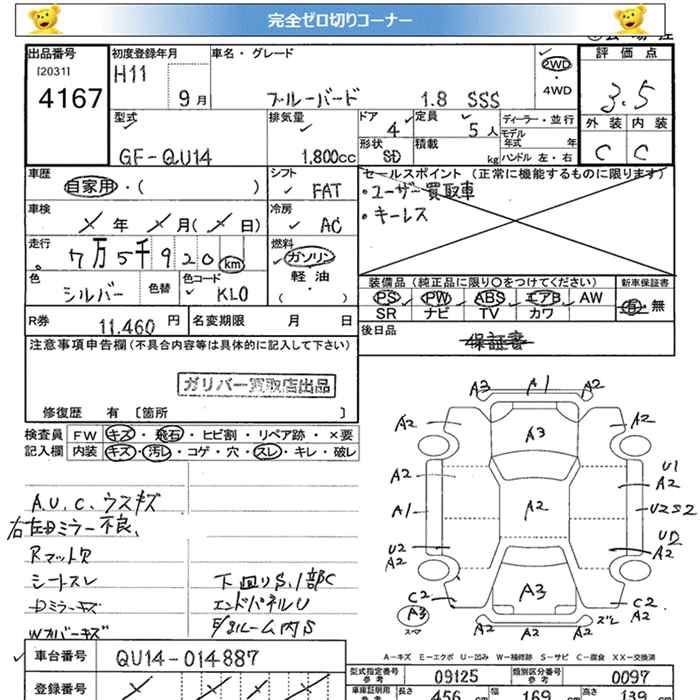 完全ゼロ切りコーナー
出品番号 初度登録年月 車名・グレード 評価点
[2031] H11 2WD
4167 9月 ブルーバード 1.8 SSS ・4WD 3.5
型式 排気量 ドア 定員 ディーラー・並行 外装 内装
4 5人 モデル年式 年
形状 積載
GF-QU14 1,800cc SD kg ハンドル 左・右 C C
車歴 シフト セールスポイント (正常に機能するものに限ります)
自家用・( ) FAT ・ユーザー買取車
車検 冷房 ・キーレス
年 月( 日) AC
走行 燃料
7万5千920km ガソリン
色 色替 色コード 軽・油
シルバー KL0 ( )
装備品 (純正品に限り○をつけてください) 新車保証書
PS PW ABS エアB AW 有・無
SR ナビ TV カワ
R券 11,460円 名変期限 月 日
後日品 保証書
注意事項申告欄(不具合内容等は具体的に記入して下さい)
ガリバー買取店出品
修復歴 有 [箇所 ]
検査員 FW キズ・飛石・ヒビ割・リペア跡・×要
記入欄 内装 キズ・汚レ・コゲ・穴・スレ・キレ・破レ
A.U.C.ウスキズ
右左Dミラー不良、
Rマット欠
シートスレ 下廻りS.1部C
Dミラーキズ エンドパネルU
Wカバーキズ ルーム内S
A3 A1 A2
A2 A3 A2
A2 U1
A2
A1 A2 U2S2
U2 UD
A2 A2
C2 A3 C2
A3 A2
スマ A2 A2 A2
A-キズ E-エクボ U-凹み W-補修跡 S-サビ C-腐食 XX-交換済
車台番号 QU14-014887
登録番号
型式指定番号 参考 09125 類別区分番号 参考 0097
車庫証明用 参考 長さ 456 cm 幅 169 cm 高さ 139 cm